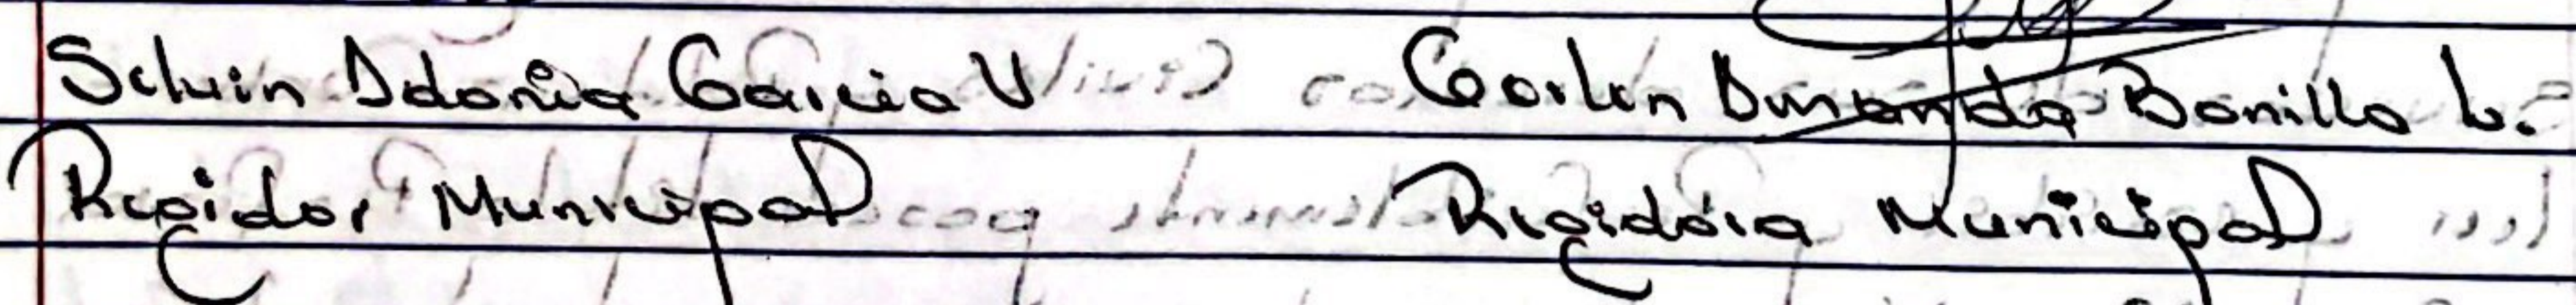 Selvin Idonia Garcia V Bonilla L.
Regidor Municipal Regidora Municipal